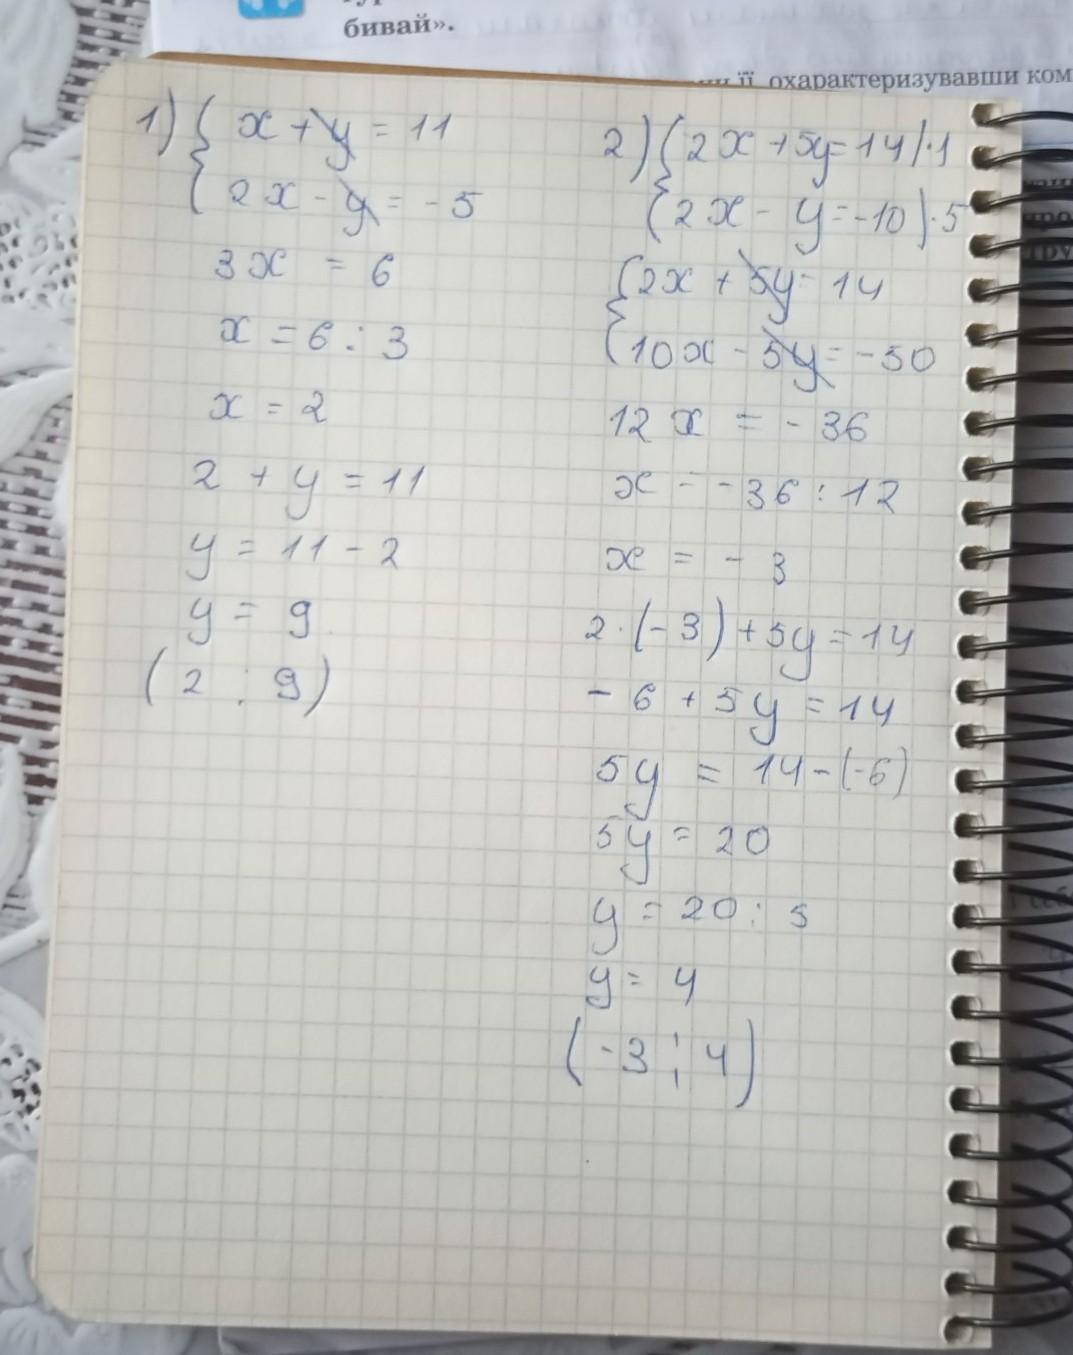 бивай».
її, охарактеризувавши ком
1) { x + y = 11
2x - y = -5
3x = 6
x = 6 : 3
x = 2
2 + y = 11
y = 11 - 2
y = 9
(2 ; 9)
2) { 2x + 5y = 14 |·1
2x - y = -10 |·5
{ 2x + 5y = 14
10x - 5y = -50
12x = -36
x = -36 : 12
x = -3
2·(-3) + 5y = 14
-6 + 5y = 14
5y = 14 - (-6)
5y = 20
y = 20 : 5
y = 4
(-3 ; 4)